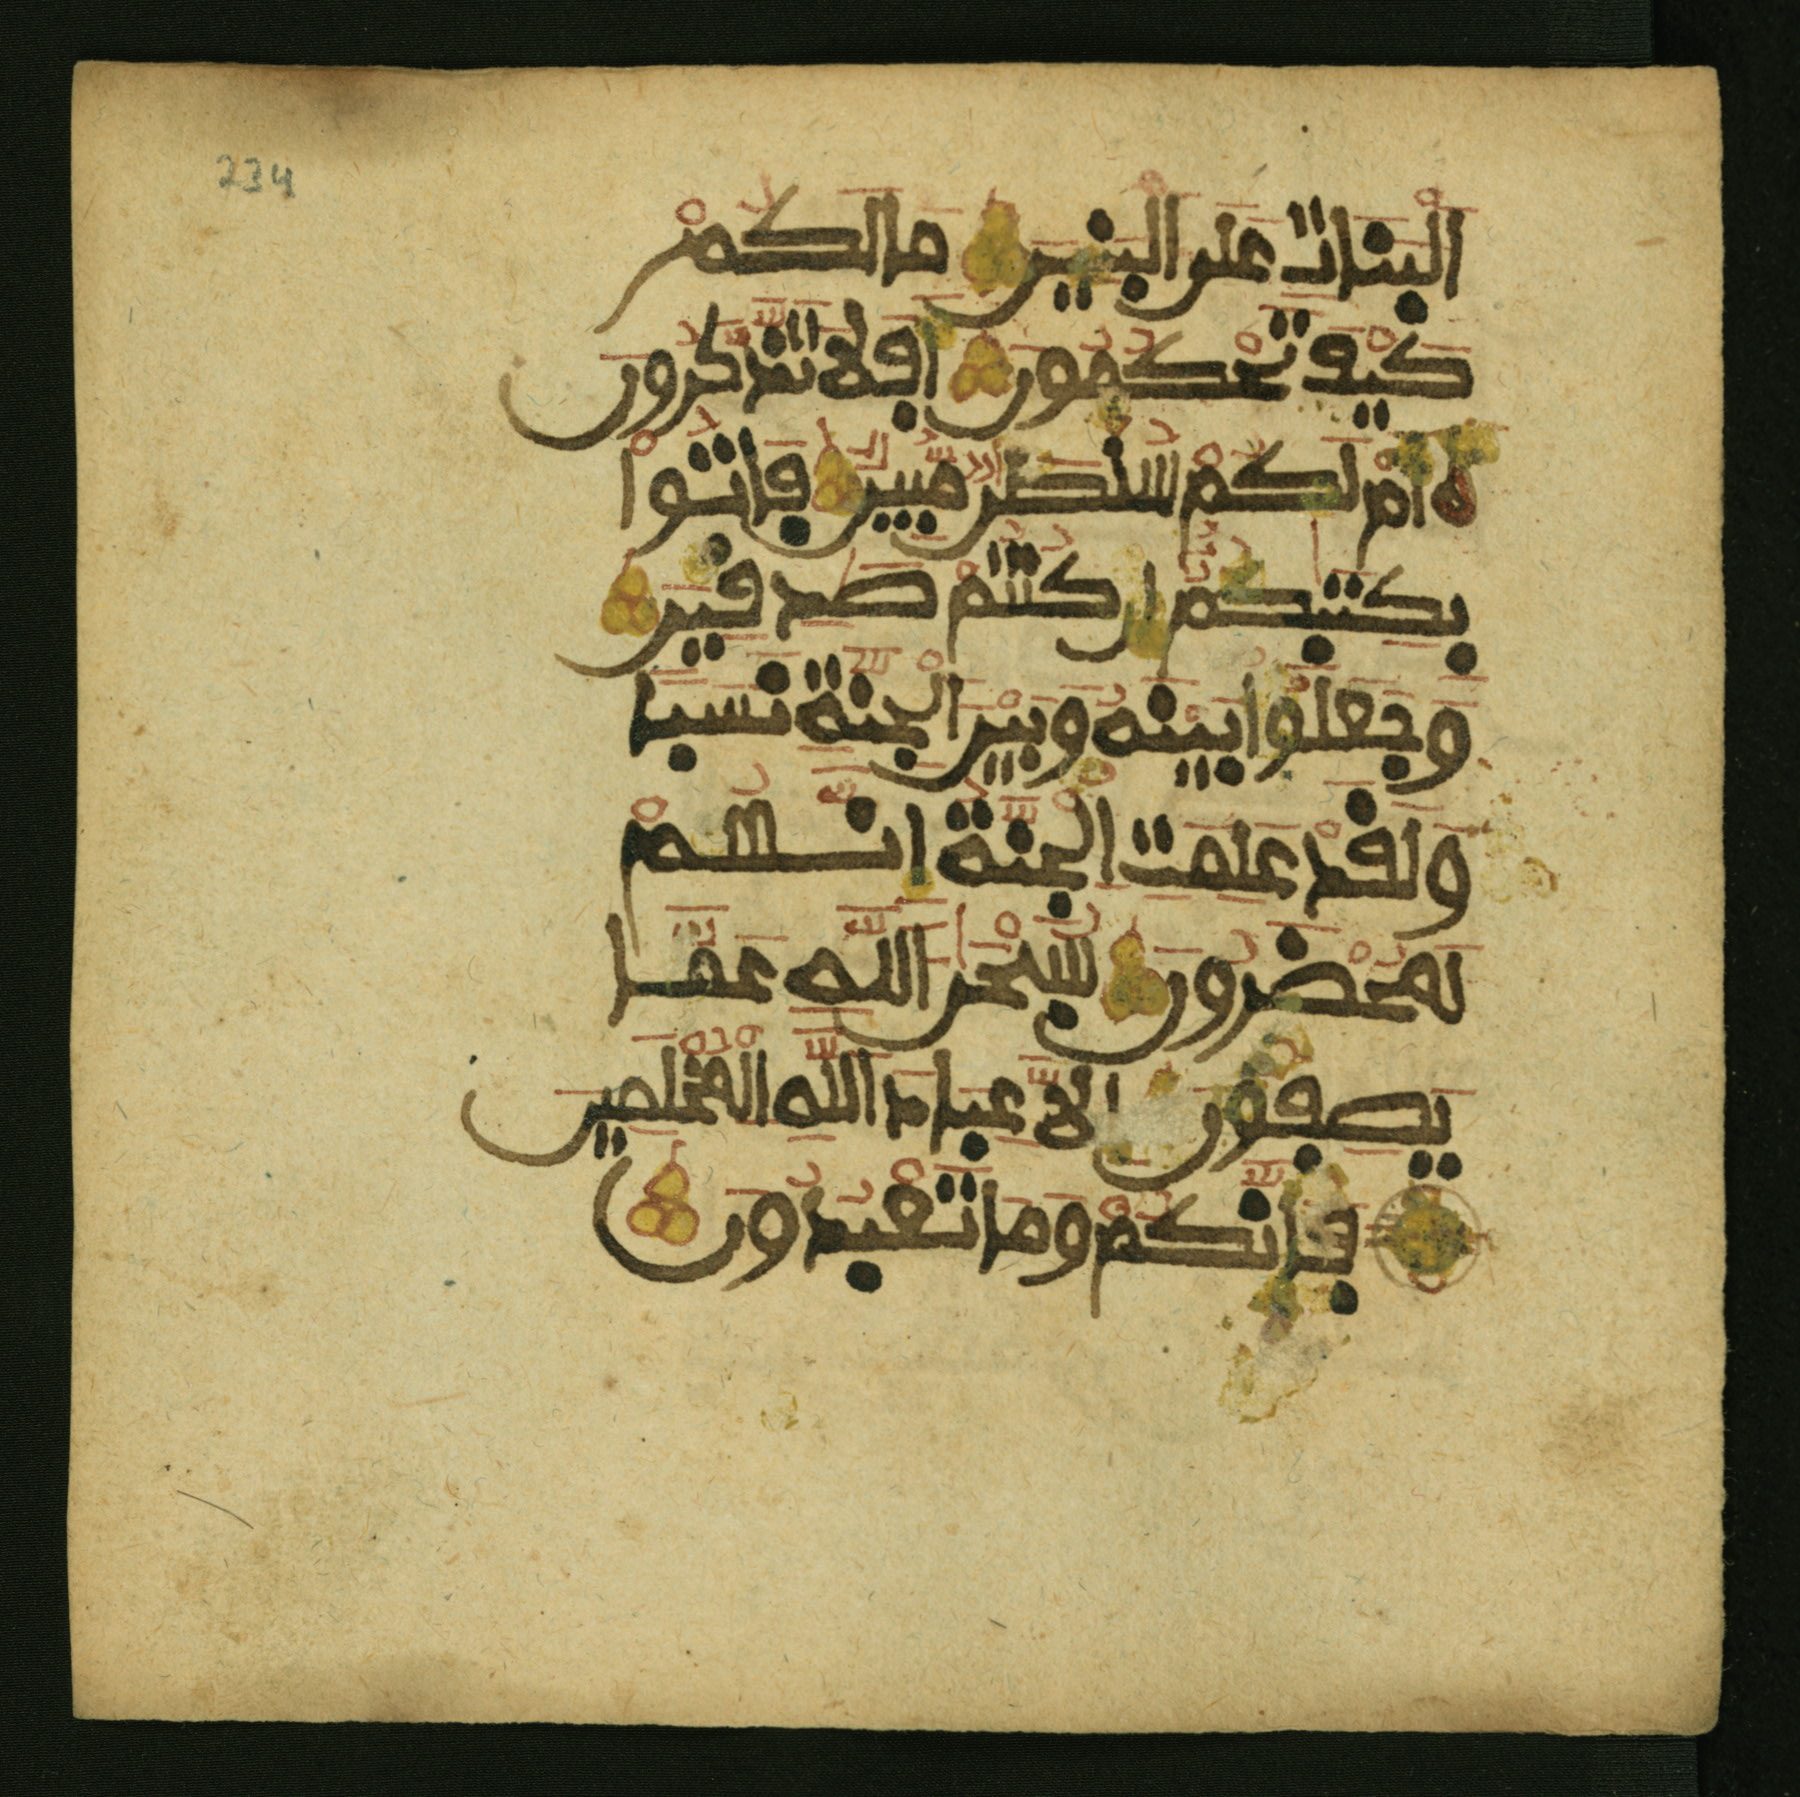 234
البنات على البنين مالكم
كيف تحكمون افلا تذكرون
ام لكم سلطن مبين فاتوا
بكتبكم ان كنتم صدقين
وجعلوا بينه وبين الجنة نسبا
ولقد علمت الجنة انهم
لمحضرون سبحن الله عما
يصفون الا عباد الله المخلصين
فانكم وما تعبدون